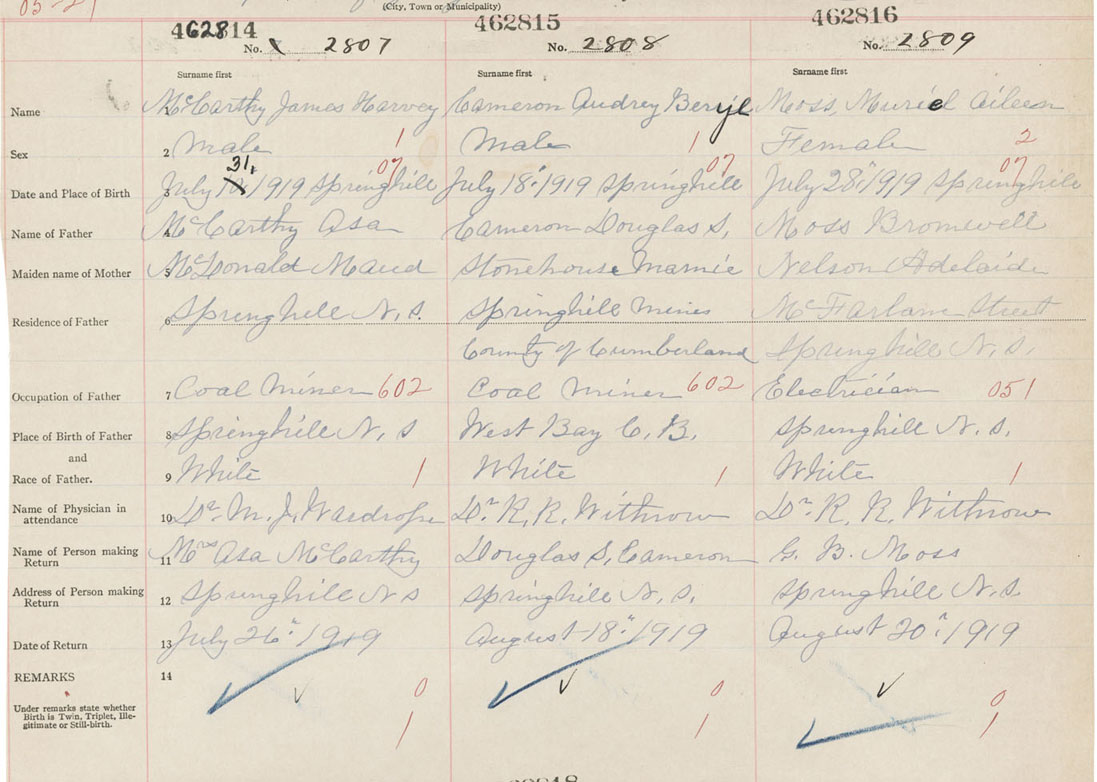 05-21
(City, Town or Municipality)
462814 462815 462816
No. 2807 No. 2808 No. 2809
Surname first Surname first Surname first
Name 1 McCarthy James Harvey Cameron Audrey Beryl Moss, Muriel Aileen
Sex 2 Male 1 Male 1 Female 2
31,
Date and Place of Birth 3 July 1919 Springhill 07 July 18", 1919 Springhill 07 July 28" 1919 Springhill 07
Name of Father 4 McCarthy Asa Cameron Douglas S, Moss Bromwell
Maiden name of Mother 5 McDonald Maud Stonehouse Mamie Nelson Adelaide
Residence of Father 6 Springhill N, S. Springhill Mines McFarlane Street
County of Cumberland Springhill N, S,
Occupation of Father 7 Coal Miner 602 Coal Miner 602 Electrician 051
Place of Birth of Father 8 Springhill N, S West Bay C, B, Springhill N. S,
and
Race of Father. 9 White 1 White 1 White 1
Name of Physician in attendance 10 Dr. M. J, Wardrope Dr. R, R, Withrow Dr. R, R, Withrow
Name of Person making Return 11 Mrs Asa McCarthy Douglas S, Cameron G. B. Moss
Address of Person making Return 12 Springhill N S Springhill N, S, Springhill N, S.
Date of Return 13 July 26", 1919 August 18", 1919 August 20", 1919
REMARKS 14
0 0 0
Under remarks state whether Birth is Twin, Triplet, Ille-
gitimate or Still-birth.
1 1 1